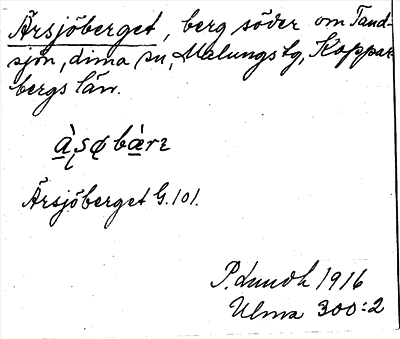 Ärsjöberget, berg söder om Tand-
sjön, Lima sn, Malungs tg, Koppar
bergs län.
Ärsjöberget G. 101.
P. Lundh 1916
Ulma 300:2